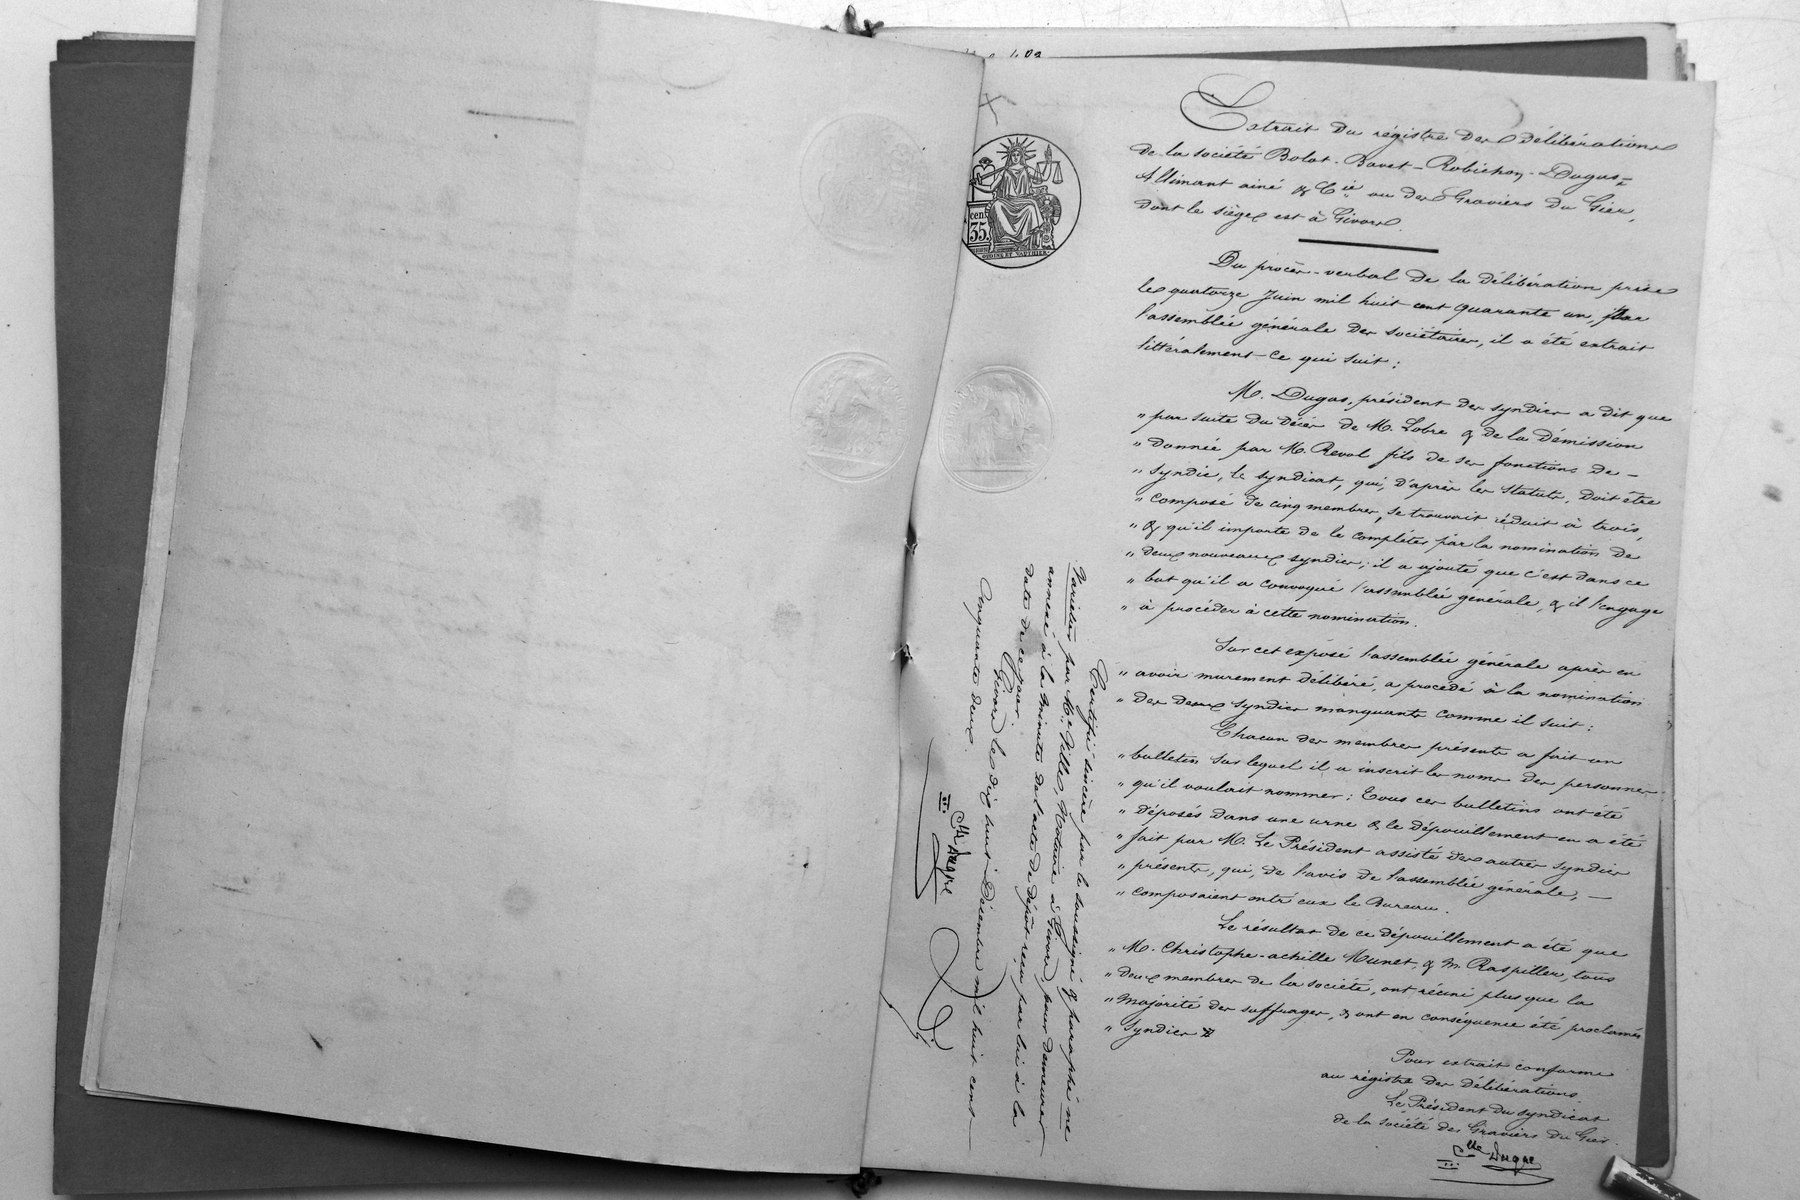 Extrait du régistre des délibérations
de la société Bolot-Bavet-Robichon-Dugas-
Allimant ainé & Cie ou des Graviers du Gier,
dont le siège est à Givors.
Du procès-verbal de la délibération prise
le quatorze Juin mil huit cent quarante un, par
l'assemblée générale des sociétaires, il a été extrait
littéralement ce qui suit :
M. Dugas, président des syndics a dit que
" par suite du décès de M. Lobre & de la démission
" donnée par M. Revol fils de ses fonctions de -
" syndic, le syndicat, qui, d'après les statuts, doit être
" composé de cinq membres, se trouvait réduit à trois,
" & qu'il importe de le compléter par la nomination de
" deux nouveaux syndics ; il a ajouté que c'est dans ce
" but qu'il a convoqué l'assemblée générale, & il l'engage
" à procéder à cette nomination.
Sur cet exposé l'assemblée générale après en
" avoir murement délibéré, a procédé à la nomination
" des deux syndics manquants comme il suit :
Chacun des membres présents a fait un
" bulletin sur lequel il a inscrit les noms des personnes
" qu'il voulait nommer ; Tous ces bulletins ont été
" déposés dans une urne & le dépouillement en a été
" fait par M. Le Président assisté des autres syndics
" présents, qui, de l'avis de l'assemblée générale, -
" composaient entr'eux le Bureau.
Le résultat de ce dépouillement a été que
" M. Christophe-achille Munet, & M. Raspiller, tous
" deux membres de la société, ont réuni plus que la
" majorité des suffrages, & ont en conséquence été proclamés
" syndics
Pour extrait conforme
au régistre des délibérations.
Le Président du syndicat
de la société des Graviers du Gier.
Clle Dugas
Certifié sincère par le soussigné & paraphé ne
Varietur par Me Ville, Notaire à Givors, pour demeurer
annexé à la minute de l'acte de dépôt reçu par lui à la
date de ce jour.
Givors le dix huit Décembre mil huit cent
cinquante deux.
Clle Dugas
cent.
35.